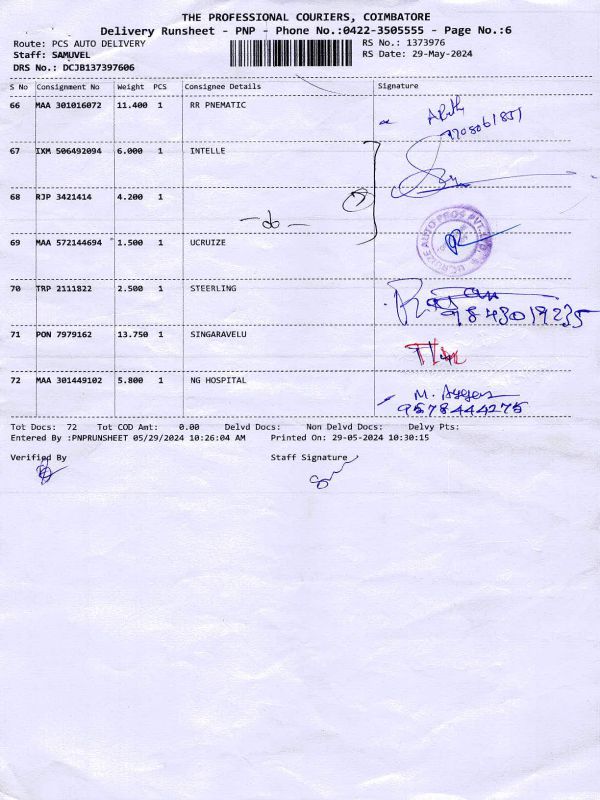 THE PROFESSIONAL COURIERS, COIMBATORE
Delivery Runsheet - PNP - Phone No.:0422-3505555 - Page No.:6
Route: PCS AUTO DELIVERY RS No.: 1373976
Staff: SAMUVEL RS Date: 29-May-2024
DRS No.: DCJB137397606
S No Consignment No Weight PCS Consignee Details Signature
66 MAA 301016072 11.400 1 RR PNEMATIC
67 IXM 506492094 6.000 1 INTELLE
68 RJP 3421414 4.200 1
- do -
69 MAA 572144694 1.500 1 UCRUIZE
UCRUIZE AUTO PROS PVT.
70 TRP 2111822 2.500 1 STEERLING
9843019235
71 PON 7979162 13.750 1 SINGARAVELU
72 MAA 301449102 5.800 1 NG HOSPITAL
9578444275
Tot Docs: 72 Tot COD Amt: 0.00 Delvd Docs: Non Delvd Docs: Delvy Pts:
Entered By :PNPRUNSHEET 05/29/2024 10:26:04 AM Printed On: 29-05-2024 10:30:15
Verified By Staff Signature